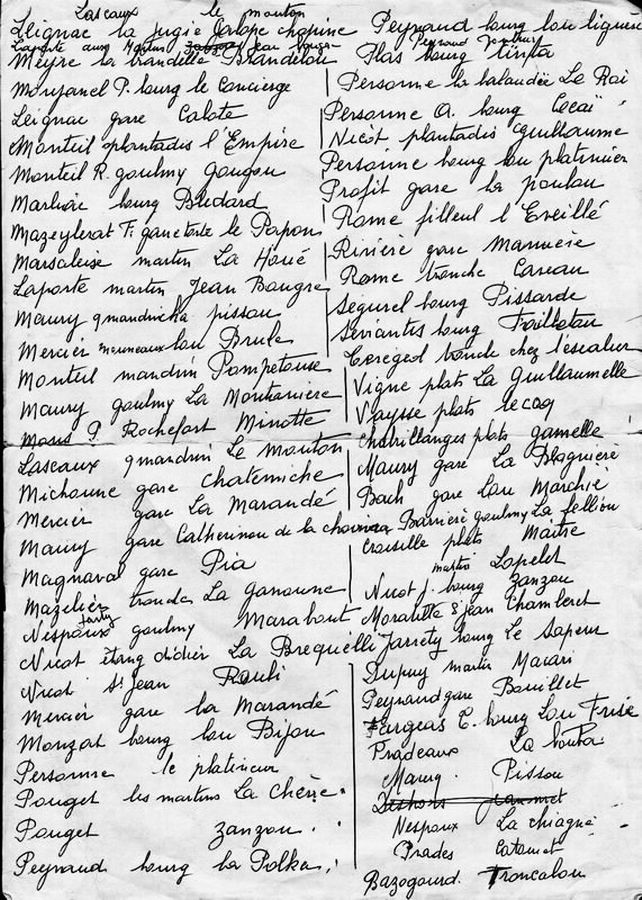 Lascaux le mouton
Leignac la jugie Galope chopine
Laporte aux Martins Jean Bougre
Meyre la brandelle Brandelou
Monjanel P. bourg le Concierge
Leignac gare Calote
Monteil plantadis l'Empire
Monteil R. goulmy Gougou
Marliac bourg Bledard
Mazeyterat F. gare le Papou
Marsaleix martin La Houé
Laporte martin Jean Bougre
Maury gmandricha pissou
Mercier lou Brule
Monteil mandrin Pompetouse
Maury goulmy La Montaniere
Mons P. Rochefort Minotte
Lascaux gmandrin Le mouton
Michoune gare Chateminiche
Mercier gare La Marandé
Maury gare Catherinou de la
Magnaval gare Pia
Mazelier tronche La ganoune
Nespoux goulmy Marabout
Nicot étang didier La Brequelli
Nicot St Jean Rouli
Mercier gare la Marandé
Monzat bourg lou Bijou
Personne le platineur
Pouget les martins La Chère
Pouget zanzou
Peyraud bourg la Polka
Peyraud bourg lou ligueur
Peyraud
Plas bourg tinta
Personne la balaudée Le Roi
Personne A. bourg Cocaï
Nicot plantadis Guillaume
Personne bourg lou platinier
Profit gare la poulou
Rome filleul l'Eveillé
Rivière gare Marinière
Rome tronche Caveau
Segurel bourg Pissarde
Serviantes bourg Taillotou
Cereged tronche chez l'escalier
Vigne plats La Guillaumelle
Vaysse plats le coq
Chabrillanges plats gamelle
Maury gare La Blagnière
Bach gare Lou Marchié
Barriere goulmy La felliou
Croiselle plats Maitre
martin Lapelet
Nicot J. bourg zanzou
Moratille St Jean Chamberet
Jarrety bourg Le Sapeur
Dupuy martin Macari
Peyraud gare Bouillet
Farges E. bourg Lou Frisé
Pradeaux La bouta
Maury Pissou
Nespoux La chiagne
Prades Catomet
Bazogourd. Troncalou